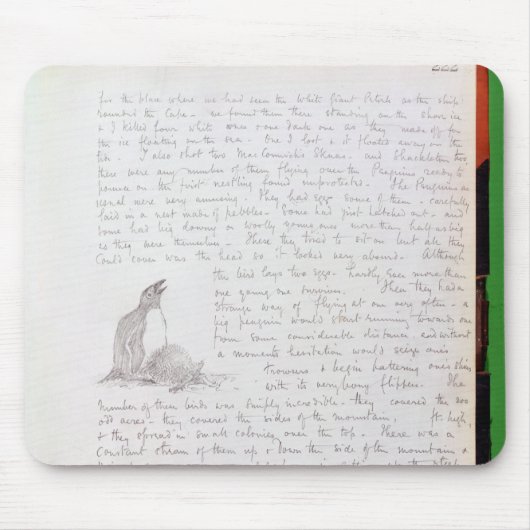 for the place where we had seen the White Giant Petrels as the ship
rounded the Cape - we found them there standing on the shore ice
& I killed four white ones & one dark one as they made off for
the ice floating on the sea. One I lost & it floated away on the
tide. I also shot two MacCormick's Skuas. and Shackleton two,
there were any number of them flying over the Penguins ready to
pounce on the first nestling found unprotected. The Penguins as
usual were very amusing. They had eggs some of them - carefully
laid in a nest made of pebbles - Some had just hatched out - and
some had big downy or woolly young ones more than half as big
as they were themselves - These they tried to sit on but all they
could cover was the head so it looked very absurd. Although
the bird lays two eggs - hardly ever more than
one young one survives. Then they had a
strange way of flying at one very often - a
big penguin would start running towards one
from some considerable distance and without
a moments hesitation would seize ones
trowsers & begin battering ones shins
with its very bony flippers. The
number of these birds was simply incredible - they covered the
odd acres - they covered the sides of the mountain, ft. high,
& they spread in small colonies over the top. There was a
constant stream of them up & down the side of the mountain &